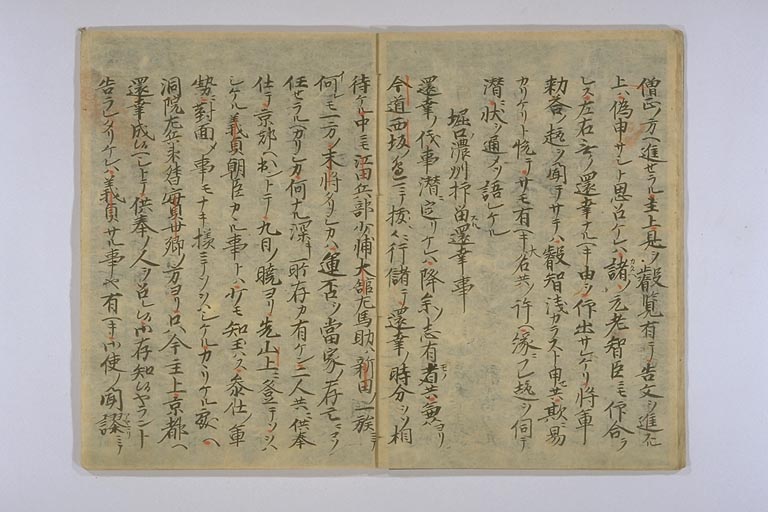 僧正ノ方ヘ進セラル主上是ヲ叡覧有テ告文ヲ進上
上ハ偽申サシト思召ケレハ諸ノ元老智臣ニモ作合ラ
レス左右ナク還幸ナルヘキ由ヲ作出サレケリ将軍
勅答ノ趣ヲ聞テサテハ叡智浅カラスト申セ共欺ニ易
カリケリト悦テサモ有ヘキ大名共ノ許ヘ縁ニ趣ヲ伺テ
潜ニ状ヲ通メソ語レケル
堀口濃州押留還幸事
還幸ノ儀事潜ニ定リケレハ降参ノ志有者共ハ兼ヨリ
今道西坂ノ邉ニテ抜々ニ行儲テ還幸ノ時分ヲソ相
待ケル中ニモ江田兵部少輔大舘左馬助ハ新田ノ一族ニテ
何レモ一方ノ末将タリシカハ運否ヲ當家ノ存亡ニコソ
任セラルヘカリシカ何ナル深キ所存カ有ケン二人共ニ供奉
仕テ京都ヘ出ントテ九日ノ暁ヨリ先山上ニ登テソヲハ
シケル義貞朝臣カル事トハ少モ知玉ハス参仕ノ軍
勢ニ對面メ事モナキ様ニテソヲハシケルカヽリケル處ヘ
洞院左衛門督實世卿ノ方ヨリ只今主上京都ヘ
還幸成ヘシトテ供奉ノ人ヲ召レ候御存知候ヤラント
告ラレタリケレハ義貞サル事ヤ有ヘキ御使ノ聞誤ニテ